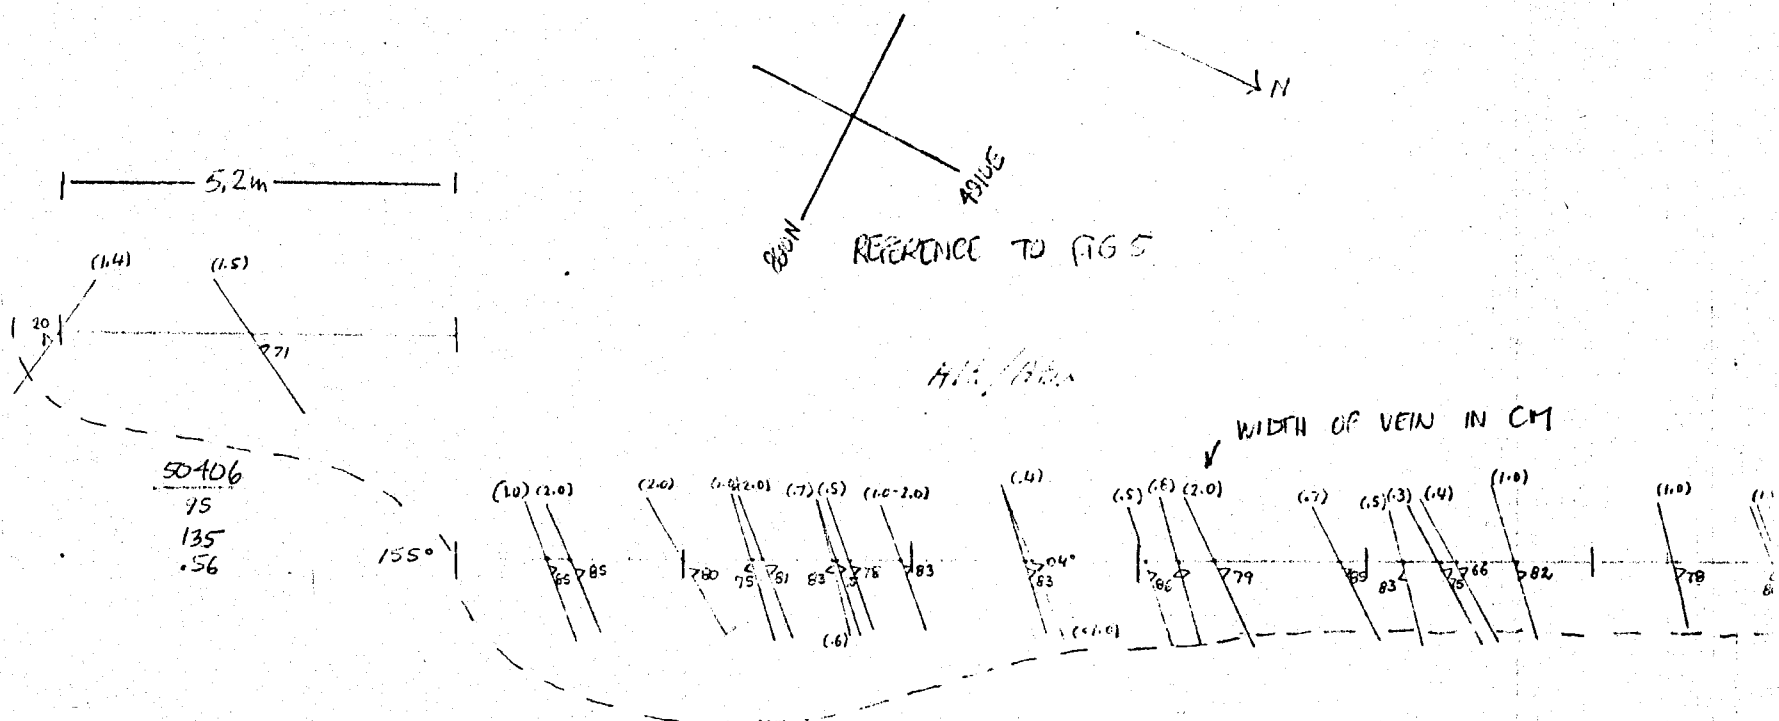 N
5.2m
4910E
REFERENCE TO FIG 5
(1.4) (1.5)
20
71
WIDTH OF VEIN IN CM
50406
95
135
.56
155°
(1.0) (2.0) (2.0) (1.0) (2.0) (.7) (.5) (1.0-2.0) (.4) (.5) (.8) (2.0) (.7) (.5) (.3) (.4) (1.0) (1.0)
85 85 80 75 81 83 78 83 83 86 79 85 83 75 66 82 78
(.6)